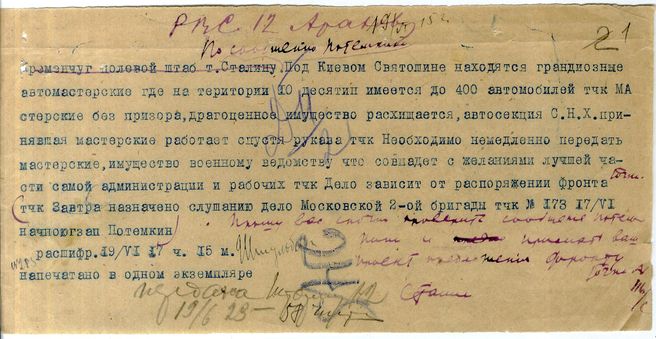 РВС 12 Армии
По сообщению Потемкина
21
Кременчуг полевой штаб т.Сталину, Под Киевом Святошине находятся грандиозные
автомастерские где на територии 10 десятин имеется до 400 автомобилей тчк МА
стерские без призора, драгоценное имущество расхищается, автосекция С.Н.Х. при-
нявшая мастерские работает спустя рукава тчк Необходимо немедленно передать
мастерские, имущество военному ведомству что совпадет с желаниями лучшей ча-
сти самой администрации и рабочих тчк Дело зависит от распоряжении фронта
тчк Завтра назначено слушанию дело Московской 2-ой бригады тчк № 173 17/VI
начпоюгзап Потемкин
Прошу вас срочно проверить сообщение Потем
кина и прислать ваш
проект предложения фронту
Сталин
расшифр. 19/VI 17 ч. 15 м.
напечатано в одном экземпляре
передана
19/6 23-